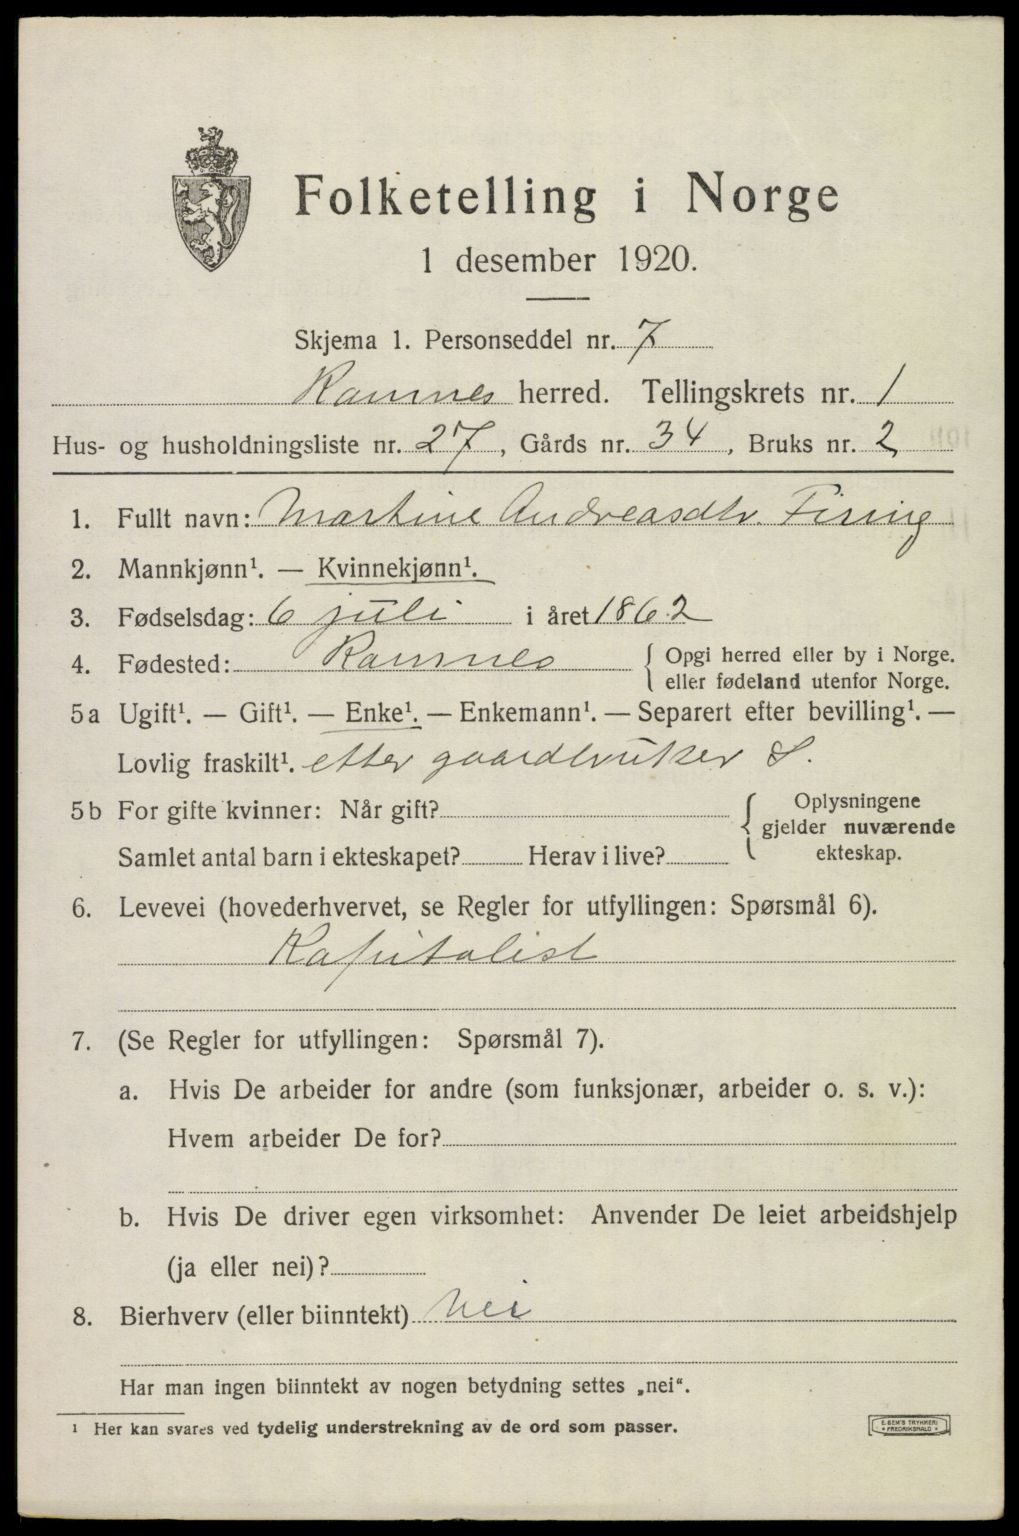 Folketelling i Norge
1 desember 1920.
Skjema 1. Personseddel nr. 7
Ramnes herred. Tellingskrets nr. 1
Hus- og husholdningsliste nr. 27, Gårds nr. 34, Bruks nr. 2
1. Fullt navn: Martine Andreasdtr. Firing
2. Mannkjønn¹. — Kvinnekjønn¹.
3. Fødselsdag: 6 juli i året 1862
4. Fødested: Ramnes { Opgi herred eller by i Norge.
eller fødeland utenfor Norge.
5a Ugift¹. — Gift¹. — Enke¹. — Enkemann¹. — Separert efter bevilling¹. —
Lovlig fraskilt¹. etter gaardbruker S.
5b For gifte kvinner: Når gift? { Oplysningene
gjelder nuværende
Samlet antal barn i ekteskapet? Herav i live? ekteskap.
6. Levevei (hovederhvervet, se Regler for utfyllingen: Spørsmål 6).
Kapitalist
7. (Se Regler for utfyllingen: Spørsmål 7).
a. Hvis De arbeider for andre (som funksjonær, arbeider o. s. v.):
Hvem arbeider De for?
b. Hvis De driver egen virksomhet: Anvender De leiet arbeidshjelp
(ja eller nei)?
8. Bierhverv (eller biinntekt) Nei
Har man ingen biinntekt av nogen betydning settes „nei“.
¹ Her kan svares ved tydelig understrekning av de ord som passer.
E. SEM'S TRYKKERI
• FREDRIKSHALD •